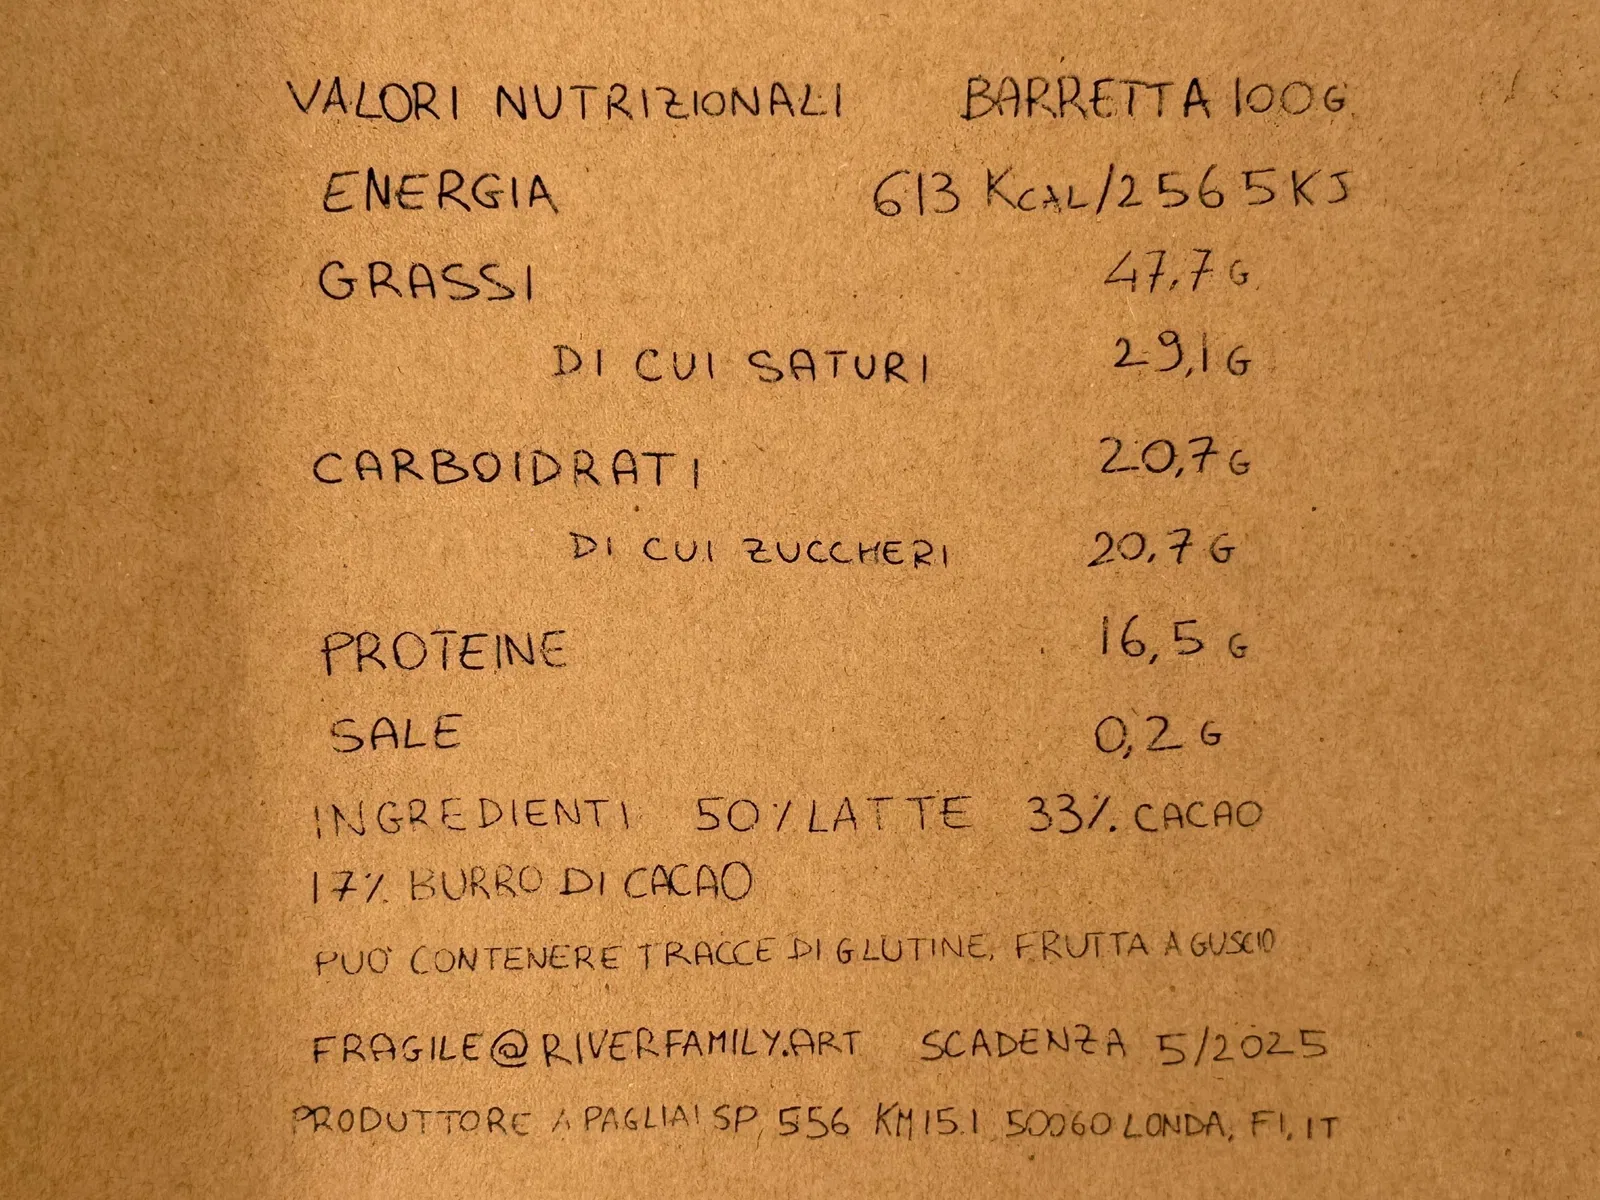 VALORI NUTRIZIONALI BARRETTA 100G
ENERGIA 613 KCAL/2565KJ
GRASSI 47,7 G
DI CUI SATURI 29,1 G
CARBOIDRATI 20,7 G
DI CUI ZUCCHERI 20,7 G
PROTEINE 16,5 G
SALE 0,2 G
INGREDIENTI 50% LATTE 33% CACAO
17% BURRO DI CACAO
PUO' CONTENERE TRACCE DI GLUTINE, FRUTTA A GUSCIO
FRAGILE@RIVERFAMILY.ART SCADENZA 5/2025
PRODUTTORE A PAGLIAI SP, 556 KM15.1 50060 LONDA, FI, IT